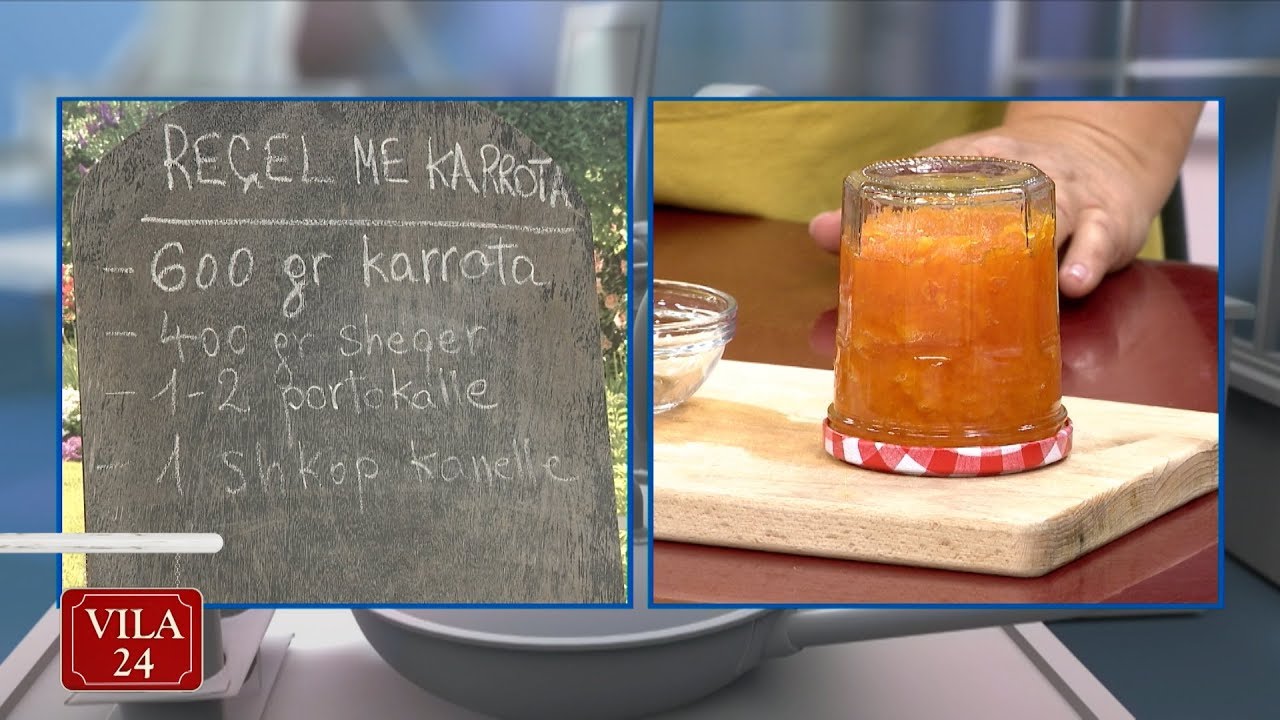 REÇEL ME KARROTA
- 600 gr karrota
- 400 gr sheqer
- 1-2 portokalle
- 1 shkop kanelle
VILA
24